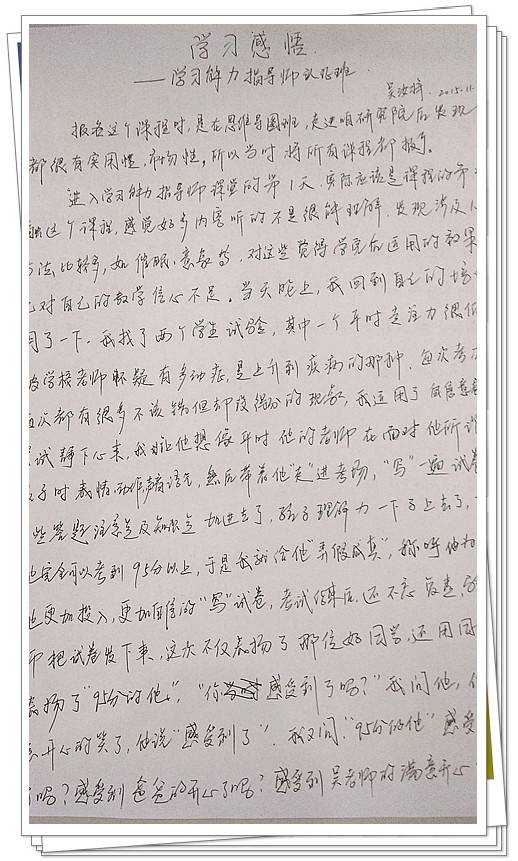 学习感悟
——学习能力指导师认证班
吴汝梅 2015.11.
报名这个课程时,是在思维导图班,走进咱研究院后发现
都很有实用性,市场性。所以当时将所有课程都报了。
进入学习能力指导师课堂的第1天,实际应该是课程的第
这个课程,感觉好多内容听的不是很能理解,发现涉及
方法比较多,如催眠、意象等,对这些觉得学完后运用的效果
对自己的教学信心不足。当天晚上,我回到自己的培
用了一下。我找了两个学生试验,其中一个平时专注力很低
被学校老师怀疑有多动症,是上升到疾病的那种。每次考
每次都有很多不该错但却没得分的现象,我运用了
试静下心来,我让他想像平时他的老师在面对他所
子时表情,动作,声音语气,然后带着他“走”进考场,“写”一遍试卷
些答题注意点及知识点加进去了,孩子理解力一下子上去了,
完全可以考到95分以上,于是我就给他“弄假成真”,称呼他为
也更加投入,更加自信的“写”试卷,考试结束后,还不忘复查
师把试卷发下来,这次不仅表扬了那位好同学,还用同
表扬了“95分的他”,“你感受到了吗?”我问他,
开心的笑了,他说“感受到了”。我又问:“95分的他”感受
了吗?感受到爸爸的开心了吗?感受到吴老师的满意开心